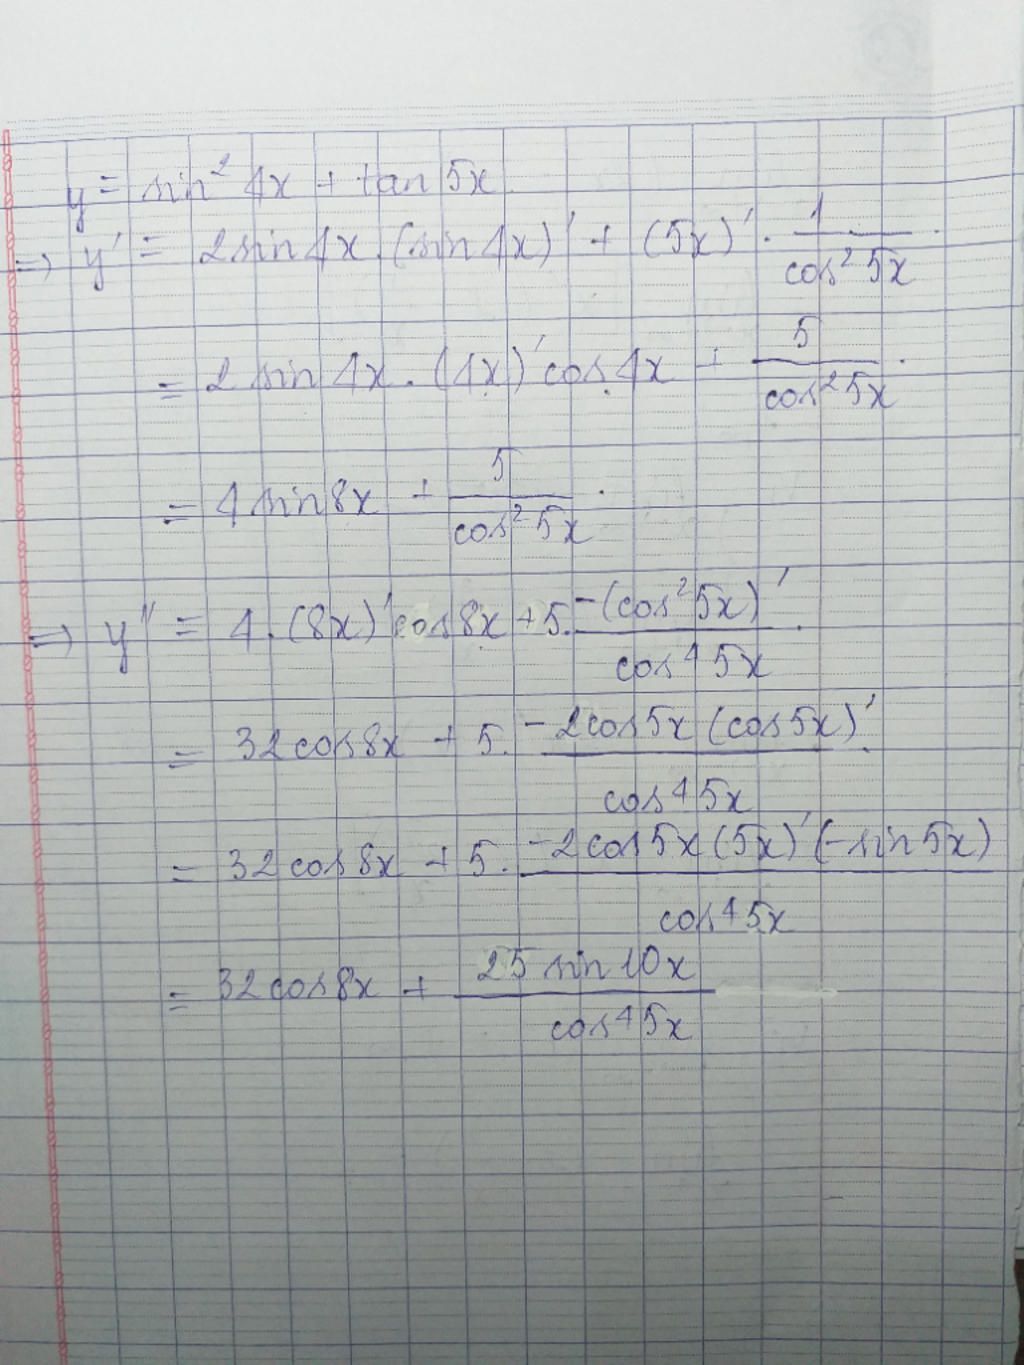 y = sin² 4x + tan 5x
⇒ y' = 2sin4x.(sin4x)' + (5x)' . 1/cos² 5x .
= 2 sin 4x . (4x)' cos 4x + 5/cos² 5x .
= 4 sin 8x + 5/cos² 5x .
⇒ y'' = 4. (8x)' cos 8x + 5. -(cos² 5x)'/cos⁴ 5x .
= 32 cos 8x + 5. -2cos5x (cos5x)'/cos⁴ 5x .
= 32 cos 8x + 5. -2cos5x (5x)' (-sin5x)/cos⁴ 5x
= 32 cos 8x + 25 sin 10x/cos⁴ 5x